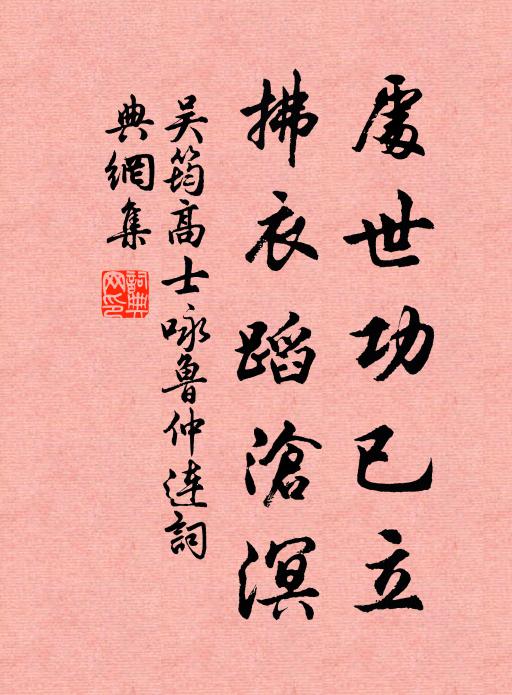 處世功已立
拂衣蹈滄溟
吴筠高士咏魯仲連詞
典網集
詞典网印